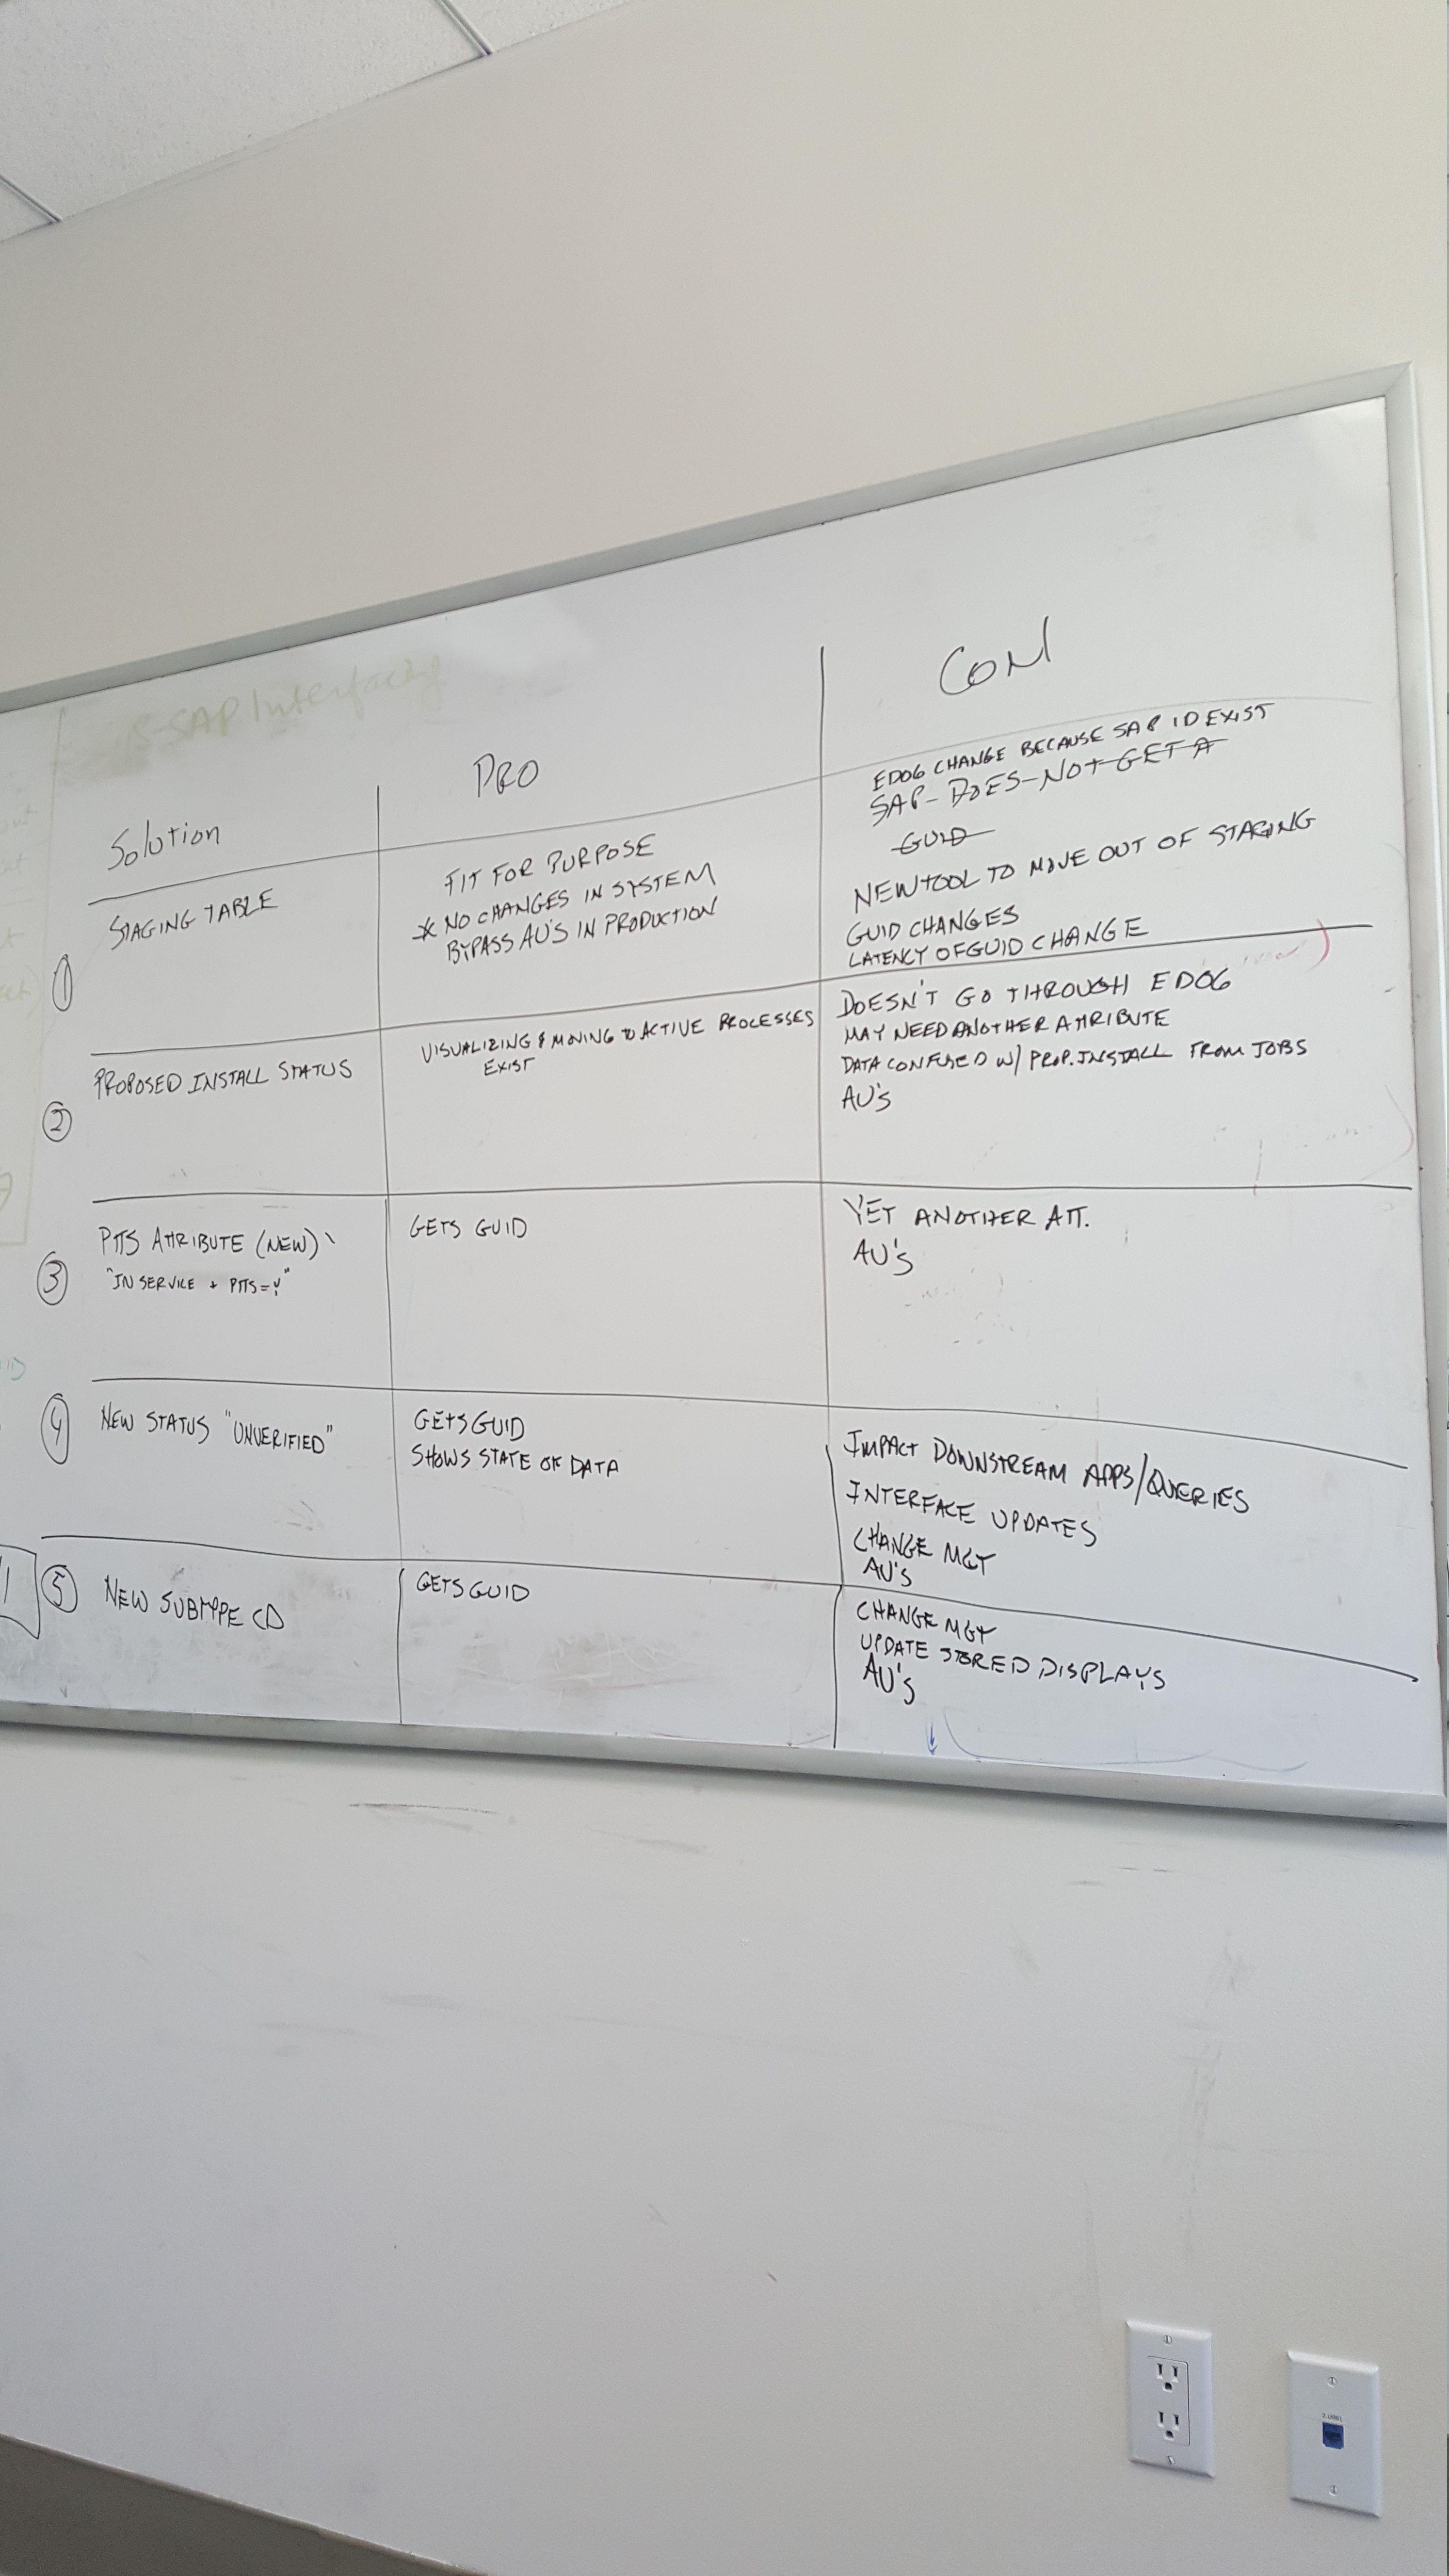 SAP Interfacing
Solution
PRO
CON
①
STAGING TABLE
FIT FOR PURPOSE
* NO CHANGES IN SYSTEM
BYPASS AU'S IN PRODUCTION
EDOG CHANGE BECAUSE SAP ID EXIST
SAP DOES NOT GET A
GUID
NEW TOOL TO MOVE OUT OF STAGING
GUID CHANGES
LATENCY OF GUID CHANGE
②
PROPOSED INSTALL STATUS
VISUALIZING & MOVING TO ACTIVE PROCESSES
EXIST
DOESN'T GO THROUGH EDOG
MAY NEED ANOTHER ATTRIBUTE
DATA CONFUSED W/ PROP. INSTALL FROM JOBS
AU'S
③
PTTS ATTRIBUTE (NEW)
"IN SERVICE + PTTS=Y"
GETS GUID
YET ANOTHER ATT.
AU'S
④
NEW STATUS "UNVERIFIED"
GETS GUID
SHOWS STATE OF DATA
IMPACT DOWNSTREAM APPS/QUERIES
INTERFACE UPDATES
CHANGE MGT
AU'S
⑤
NEW SUBTYPE CD
GETS GUID
CHANGE MGT
UPDATE STORED DISPLAYS
AU'S